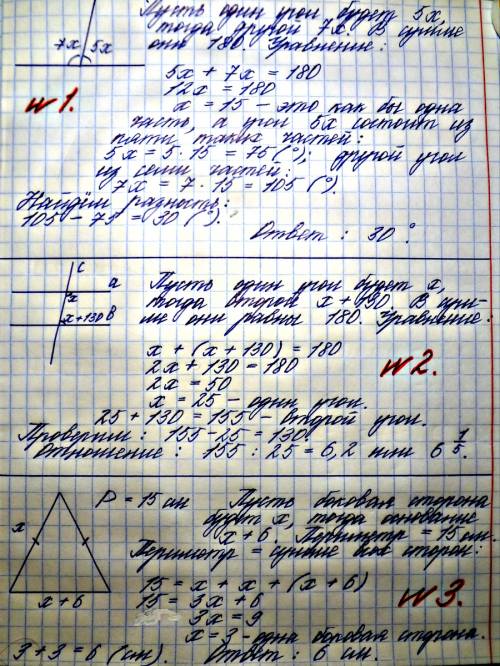 Пусть один угол будет 5x,
тогда другой 7x. В сумме
они 180. Уравнение:
7x 5x
5x + 7x = 180
12x = 180
x = 15 - это как бы одна
часть, а угол 5x состоит из
пяти таких частей:
5x = 5 · 15 = 75 (°); другой угол
из семи частей:
7x = 7 · 15 = 105 (°).
Найдём разность:
105 - 75 = 30 (°).
Ответ: 30°.
№1.
c
a
x
x+130 b
Пусть один угол будет x,
тогда второй x + 130. В сум-
ме они равны 180. Уравнение:
x + (x + 130) = 180
2x + 130 = 180
2x = 50
x = 25 - один угол.
25 + 130 = 155 - второй угол.
Проверим: 155 - 25 = 130.
Отношение: 155 : 25 = 6,2 или 6 1/5.
№2.
P = 15 см Пусть боковая сторона
будет x, тогда основание
x + 6. Периметр = 15 см.
Периметр = сумме всех сторон:
x
x + 6
15 = x + x + (x + 6)
15 = 3x + 6
3x = 9
x = 3 - одна боковая сторона.
3 + 3 = 6 (см). Ответ: 6 см.
№3.